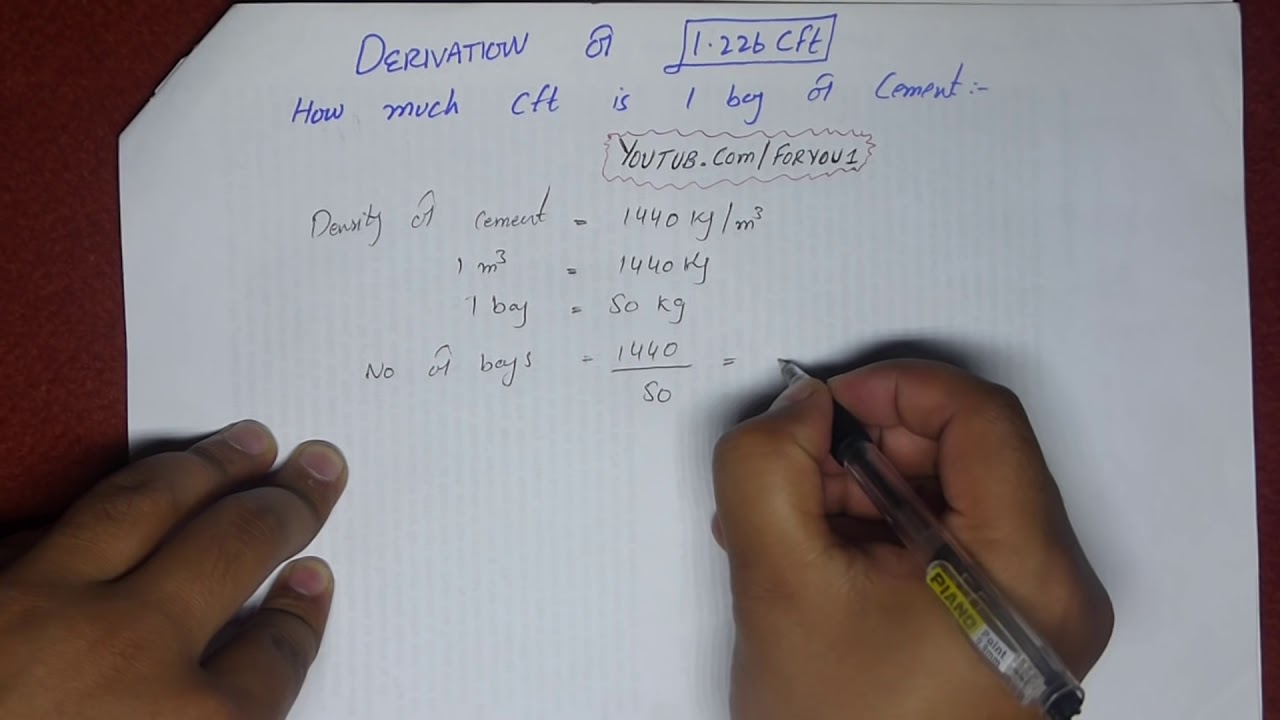 DERIVATION of 1.226 Cft
How much Cft is 1 bag of Cement:-
YOUTUB.Com/FORYOU1
Density of cement = 1440 Kg/m³
1 m³ = 1440 Kg
1 bag = 50 kg
No of bags = 1440 =
50
PIANO
Point
0.8mm